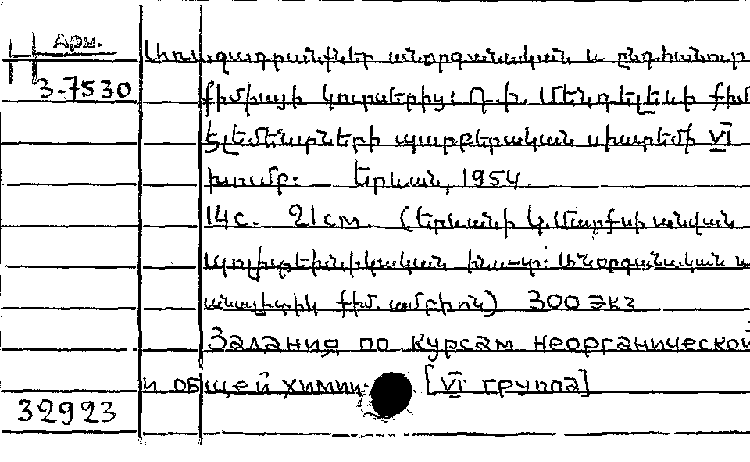 Арм.
3-7530
Առաջադրանքներ անօրգանական և ընդհանուր
քիմիայի կուրսերից: Դ. Ի. Մենդելեևի քիմ
էլեմենտների պարբերական սիստեմի VI
խումբ: Երևան, 1954.
14с. 21см. (Երևանի Կ. Մարքսի անվան
պոլիտեխնիկական ինստ.: Անօրգանական և
անալիտիկ քիմ. ամբիոն) 300 экз
Задания по курсам неорганической
и общей химии [VI группа]
32923